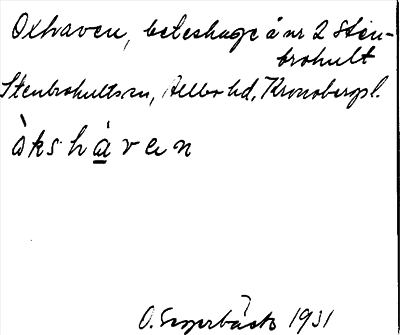 Oxhaven, beteshage å nr 2 Sten-
brohult
Stenbrohults sn, Allbo hd, Kronobergs l.
òks hàven
O. 1931